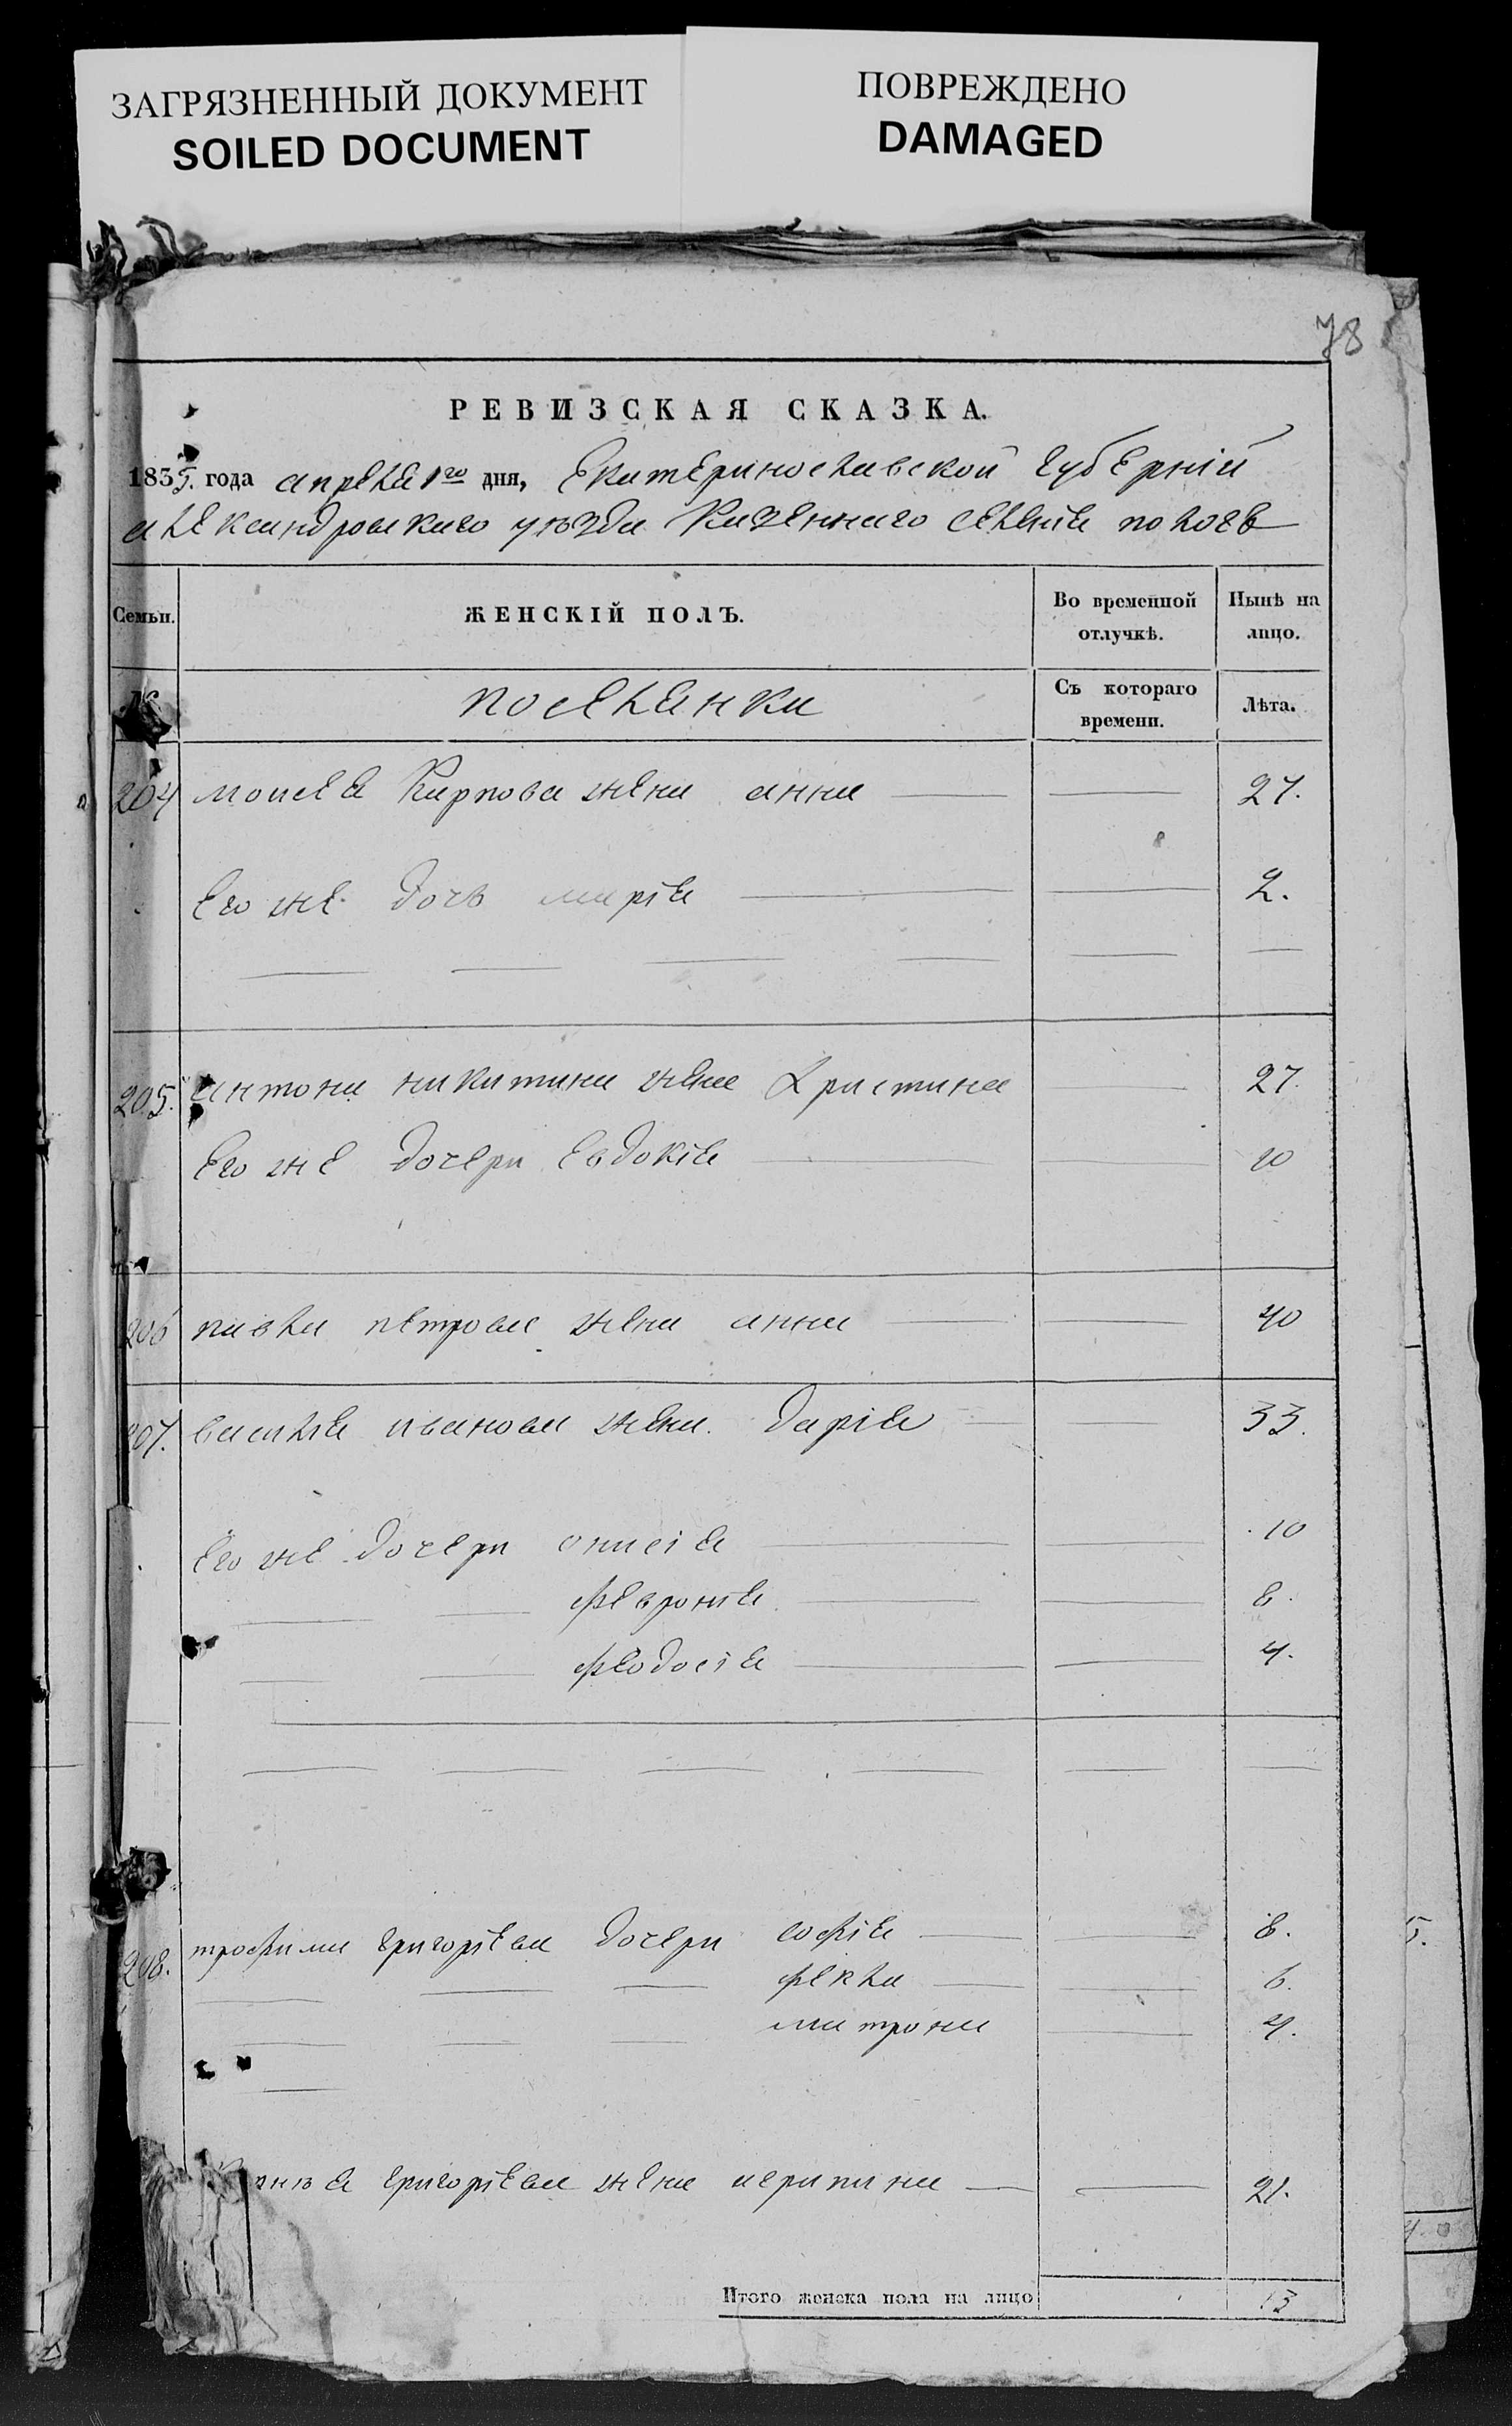 ЗАГРЯЗНЕННЫЙ ДОКУМЕНТ
SOILED DOCUMENT
ПОВРЕЖДЕНО
DAMAGED
78
РЕВИЗСКАЯ СКАЗКА.
1835. года апреля 1го дня, Екатеринославской губерніи
александровскаго уѣзда Казеннаго селенія пологъ
Семьи. ЖЕНСКІЙ ПОЛЪ. Во временной отлучкѣ. Нынѣ на лицо.
№ поселянки Съ котораго времени. Лѣта.
204 моисея Карпова жена анна 27.
Его же дочь марія 2.
205. антона никитина жена Христина 27.
Его же дочери Евдокія 10
206 павла петрова жена анна 40
207. василія иванова жена. дарія 33.
Его же дочери онисія 10
февронія 8.
феодосія 4.
208. трофима григоріева дочери софія 8.
фекла 6.
матрона 4.
григоріева жена агрипина 21.
Итого женска пола на лицо 13
5.
4.